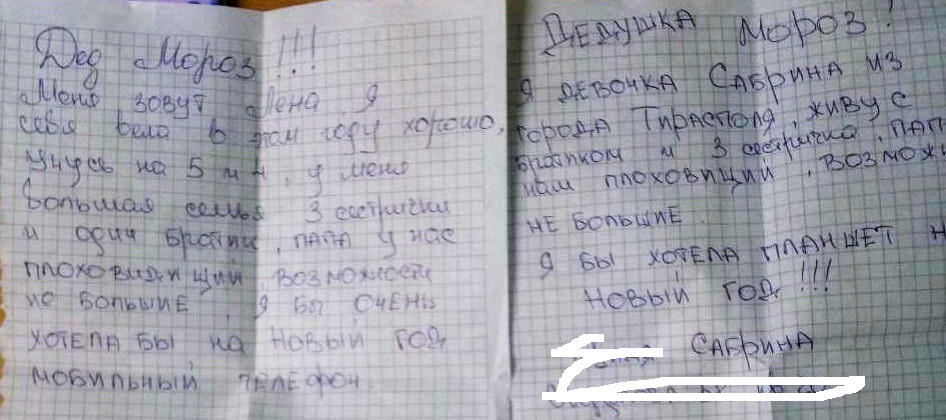 Дед Мороз!!!
Меня зовут Лена Я
себя вела в этом году хорошо,
учусь на 5 и 4, у меня
большая семья 3 сестрички
и один братик, папа у нас
плоховидящий, возможости
не большие, Я бы очень
хотела бы на Новый год
мобильный телефон
Дедушка Мороз!
Я девочка Сабрина из
города Тирасполя, живу с
братиком и 3 сестрички, пап
наш плоховищий, возможн
не большие.
Я бы хотела планшет н
Новый год!!!
Сабрина